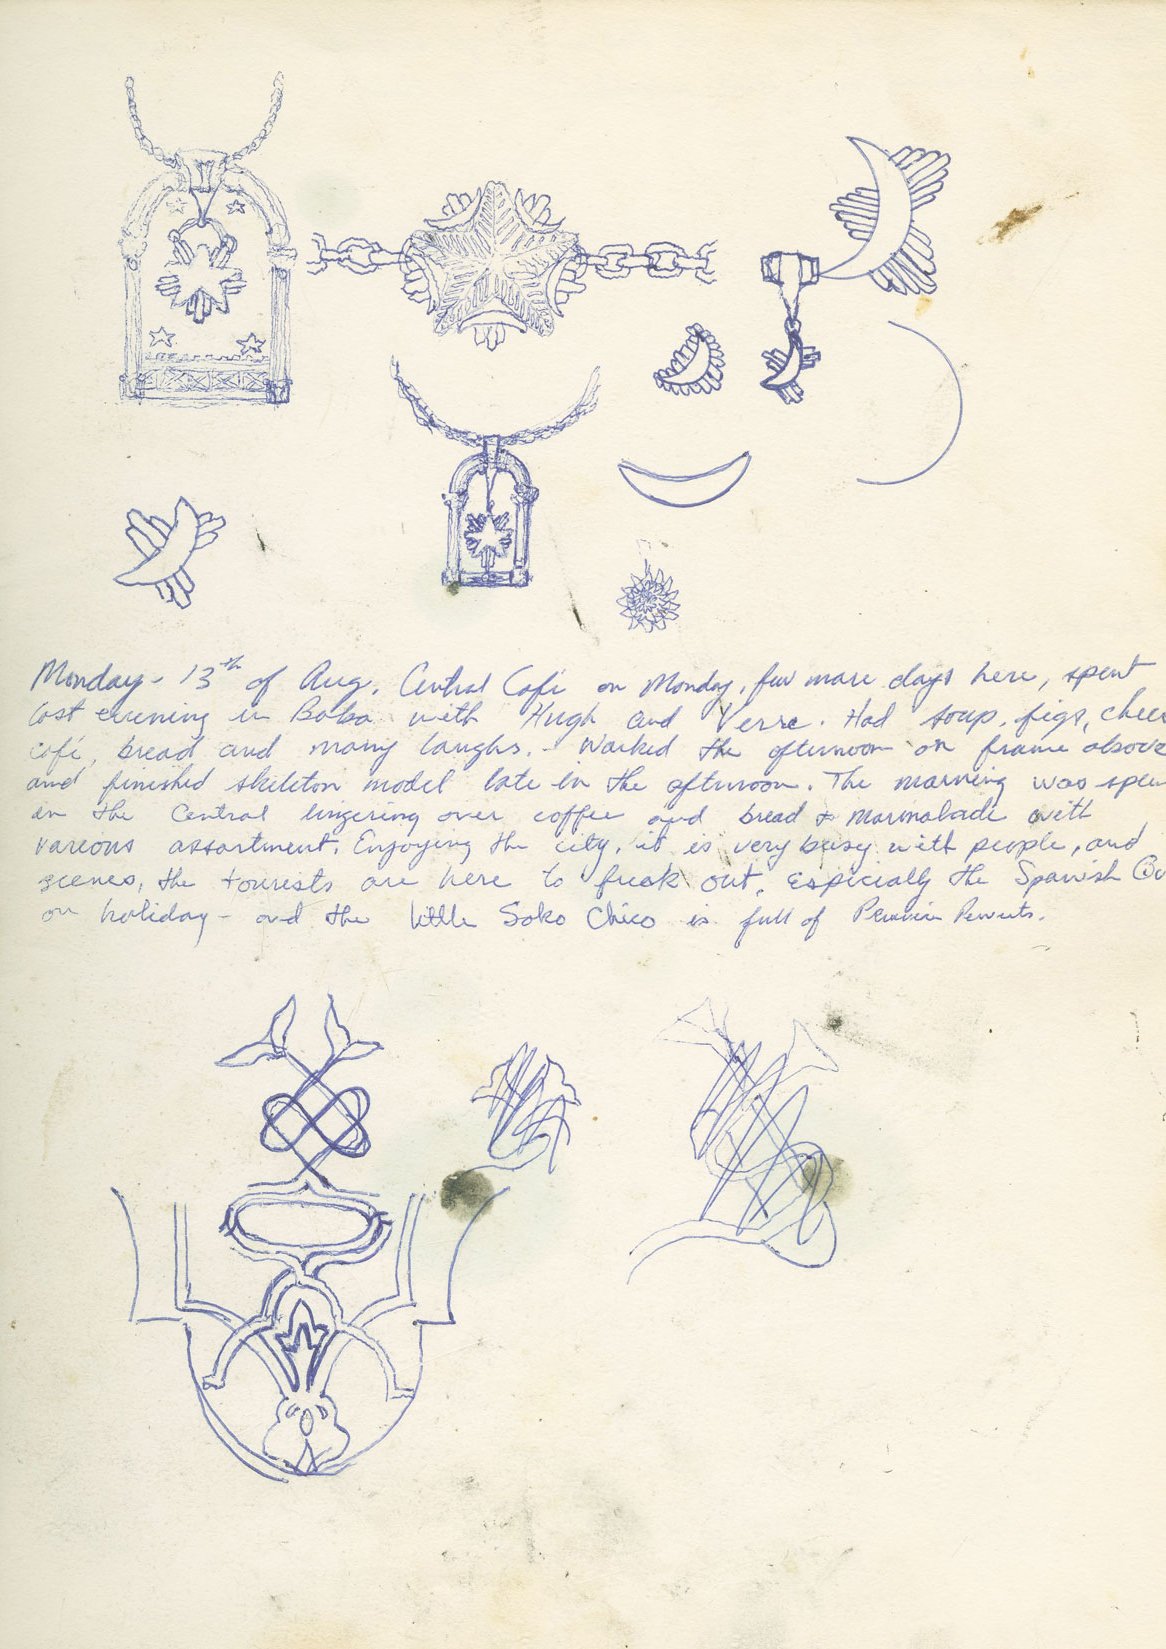 Monday - 13th of Aug. Central Café on Monday, few more days here, spent
last evening in Baba with Hugh and Verre. Had soup, figs, chees
café, bread and many laughs. - Worked the afternoon on frame above
and finished skeleton model late in the afternoon. The morning was spen
in the Central lingering over coffee and bread & marmalade with
various assortment. Enjoying the city, it is very busy with people, and
scenes, the tourists are here to freak out. Especially the Spanish
on holiday - and the little Soko Chico is full of